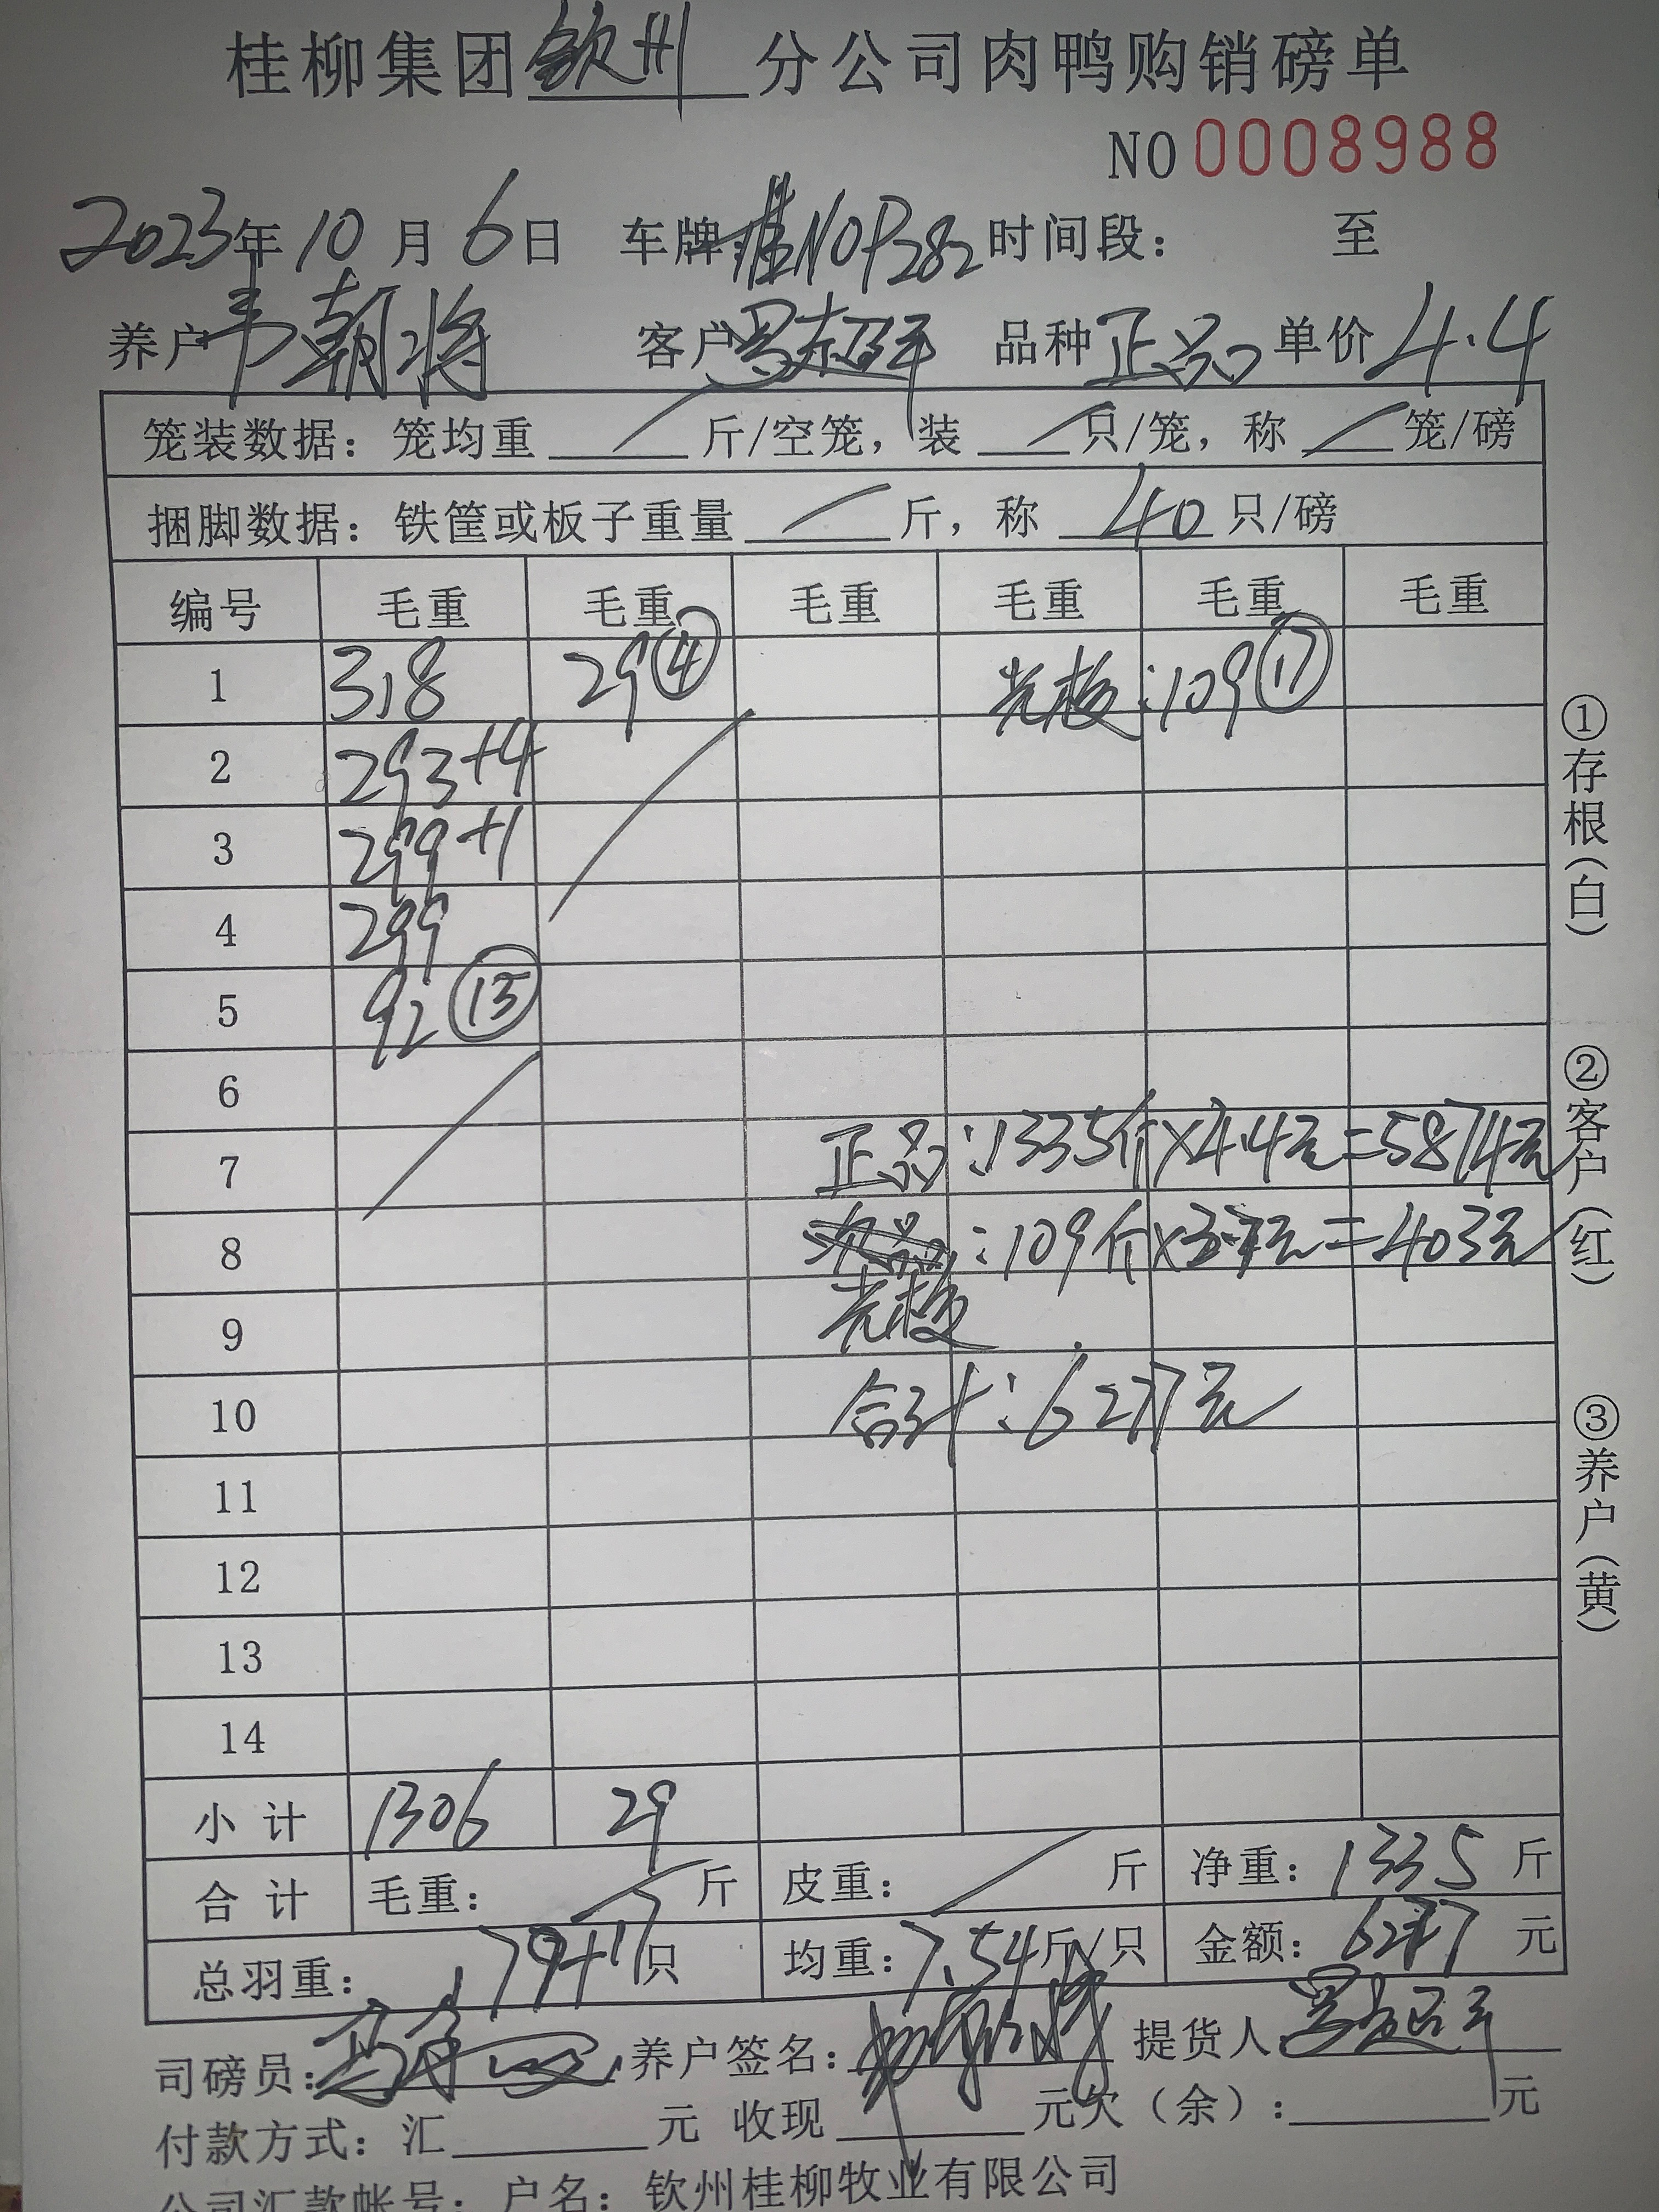 桂柳集团钦州分公司肉鸭购销磅单
NO 0008988
2023年10月6日 车牌:桂N0P282 时间段: 至
养户韦朝将 客户罗超平 品种正品 单价4.4
笼装数据:笼均重 / 斤/空笼,装 / 只/笼,称 / 笼/磅
捆脚数据:铁筐或板子重量 / 斤,称 40 只/磅
编号 毛重 毛重 毛重 毛重 毛重 毛重
1 318 29④ 光核:109⑰
2 293+4
3 299+1
4 299
5 92⑬
6
7 正品:1335斤×4.4元=5874元
8 次品:109斤×3.7元=403元
9 光核
10 合计:6277元
11
12
13
14
小计 1306 29
合计 毛重: / 斤 皮重: / 斤 净重:1335斤
总羽重:179+17只 均重:7.54斤/只 金额:6277元
司磅员: 养户签名: 提货人罗超平
付款方式:汇 元 收现 元欠(余): 元
公司汇款帐号:户名:钦州桂柳牧业有限公司
①存根(白)
②客户(红)
③养户(黄)